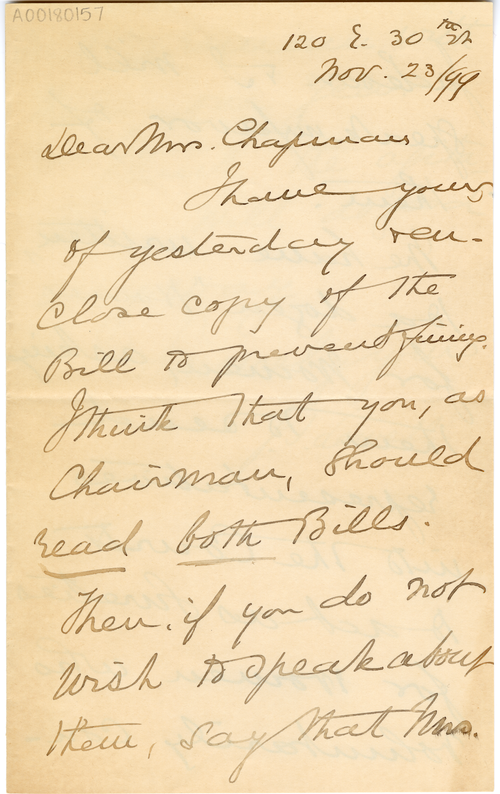 A00180157
120 E. 30th St
Nov. 23/99
Dear Mrs. Chapman
I have yours
of yesterday & en-
close copy of the
Bill to prevent
I think that you, as
Chairman, should
read both Bills.
Then, if you do not
wish to speak about
them, say that Mrs.